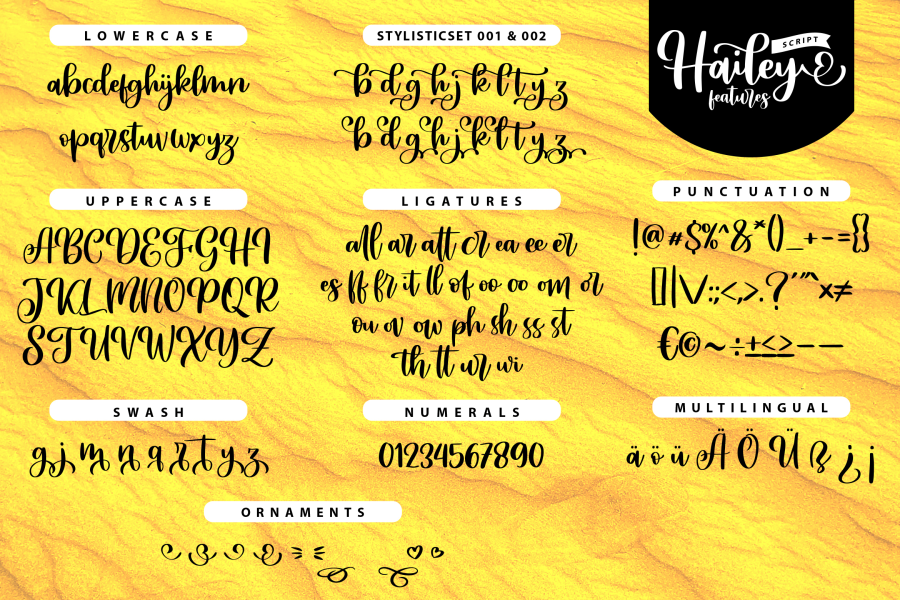 LOWERCASE
abcdefghijklmn
opqrstuvwxyz
UPPERCASE
ABCDEFGHI
JKLMNOPQR
STUVWXYZ
SWASH
g j m n q r t y z
STYLISTICSET 001 & 002
b d g h j k l t y z
b d g h j k l t y z
LIGATURES
all ar att cr ea ee er
es ff fr it ll of oo oo om or
ou ov ow ph sh ss st
th tt ur wi
NUMERALS
0123456789O
Hailey
SCRIPT
features
PUNCTUATION
!@#$%^&*()_+-={}
[]|\/:;<,>.?'"`×≠
€©~÷±≤≥——
MULTILINGUAL
ä ö ü Ä Ö Ü ß ¿ ¡
ORNAMENTS